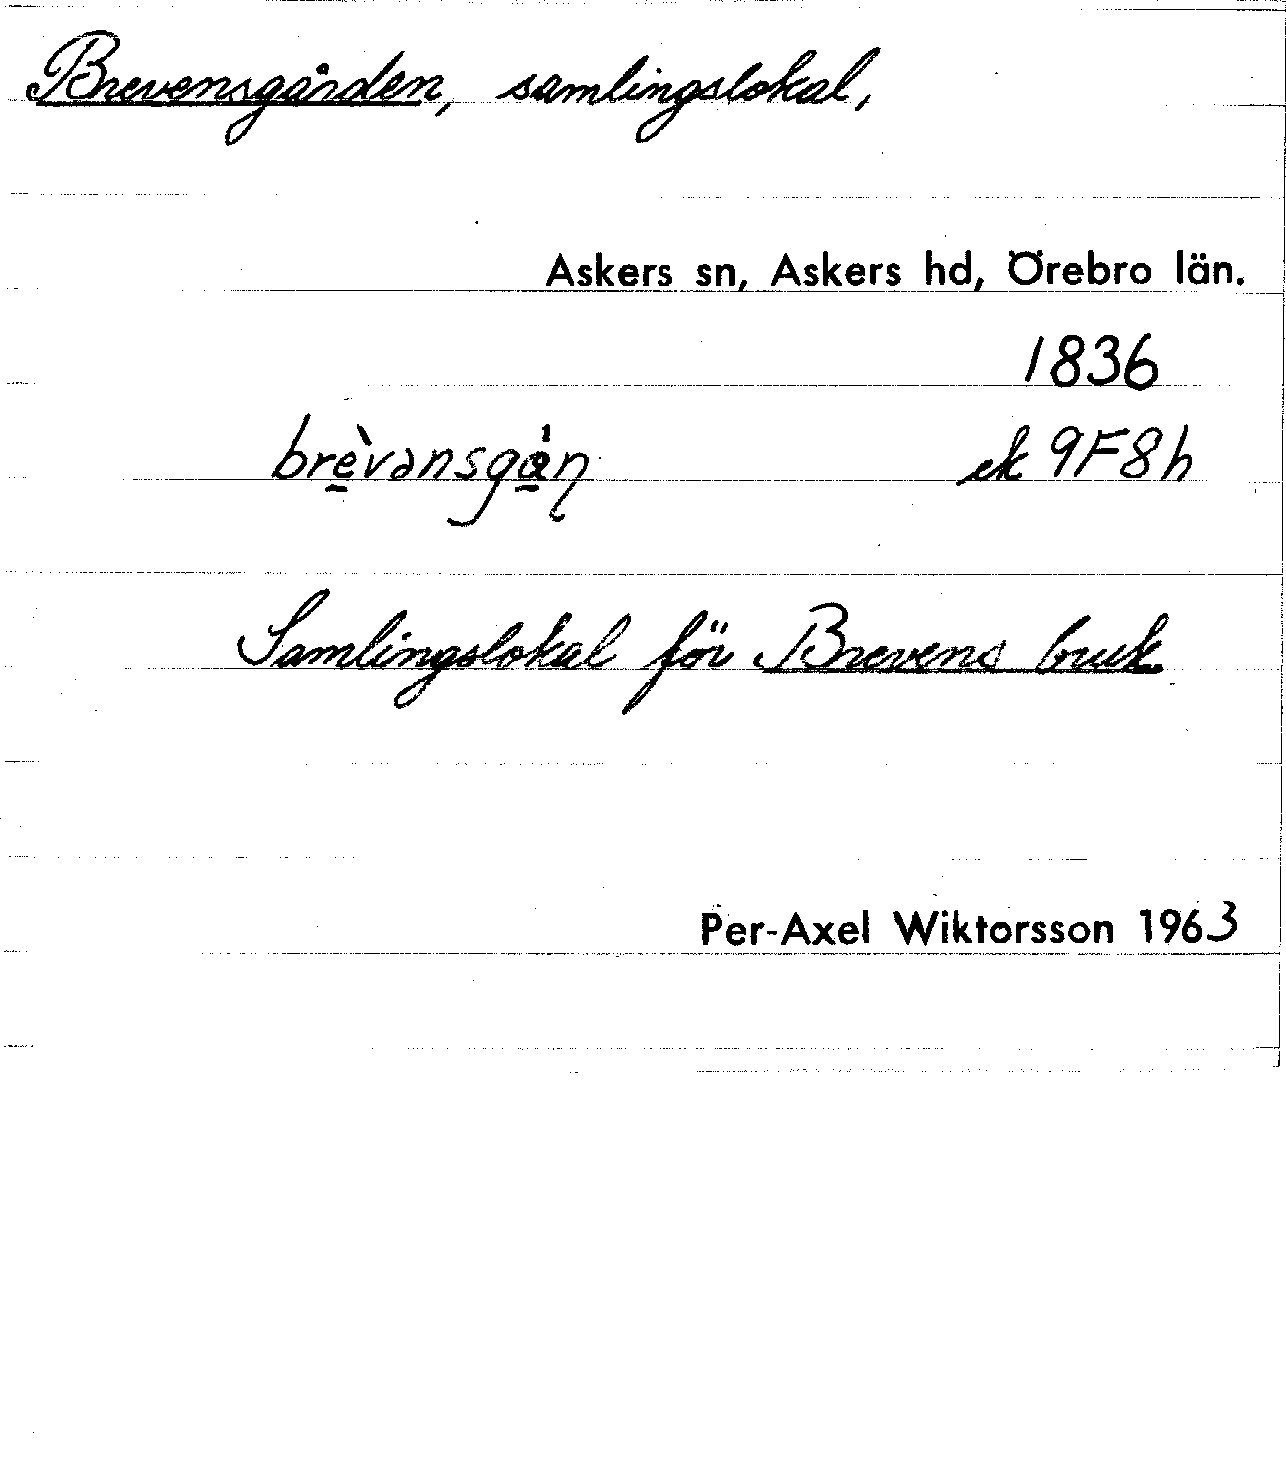 Brevensgården, samlingslokal,
Askers sn, Askers hd, Örebro län.
1836
brèvansgån ek 9F8h
Samlingslokal för Brevens bruk
Per-Axel Wiktorsson 1963